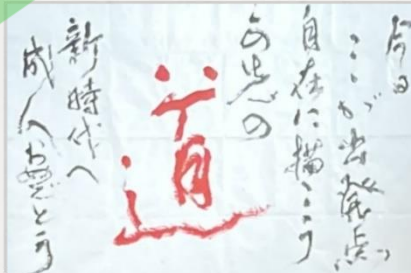 今日
ここが出発点
自在に描こう
この先の
道
新時代へ
成人お慶とう